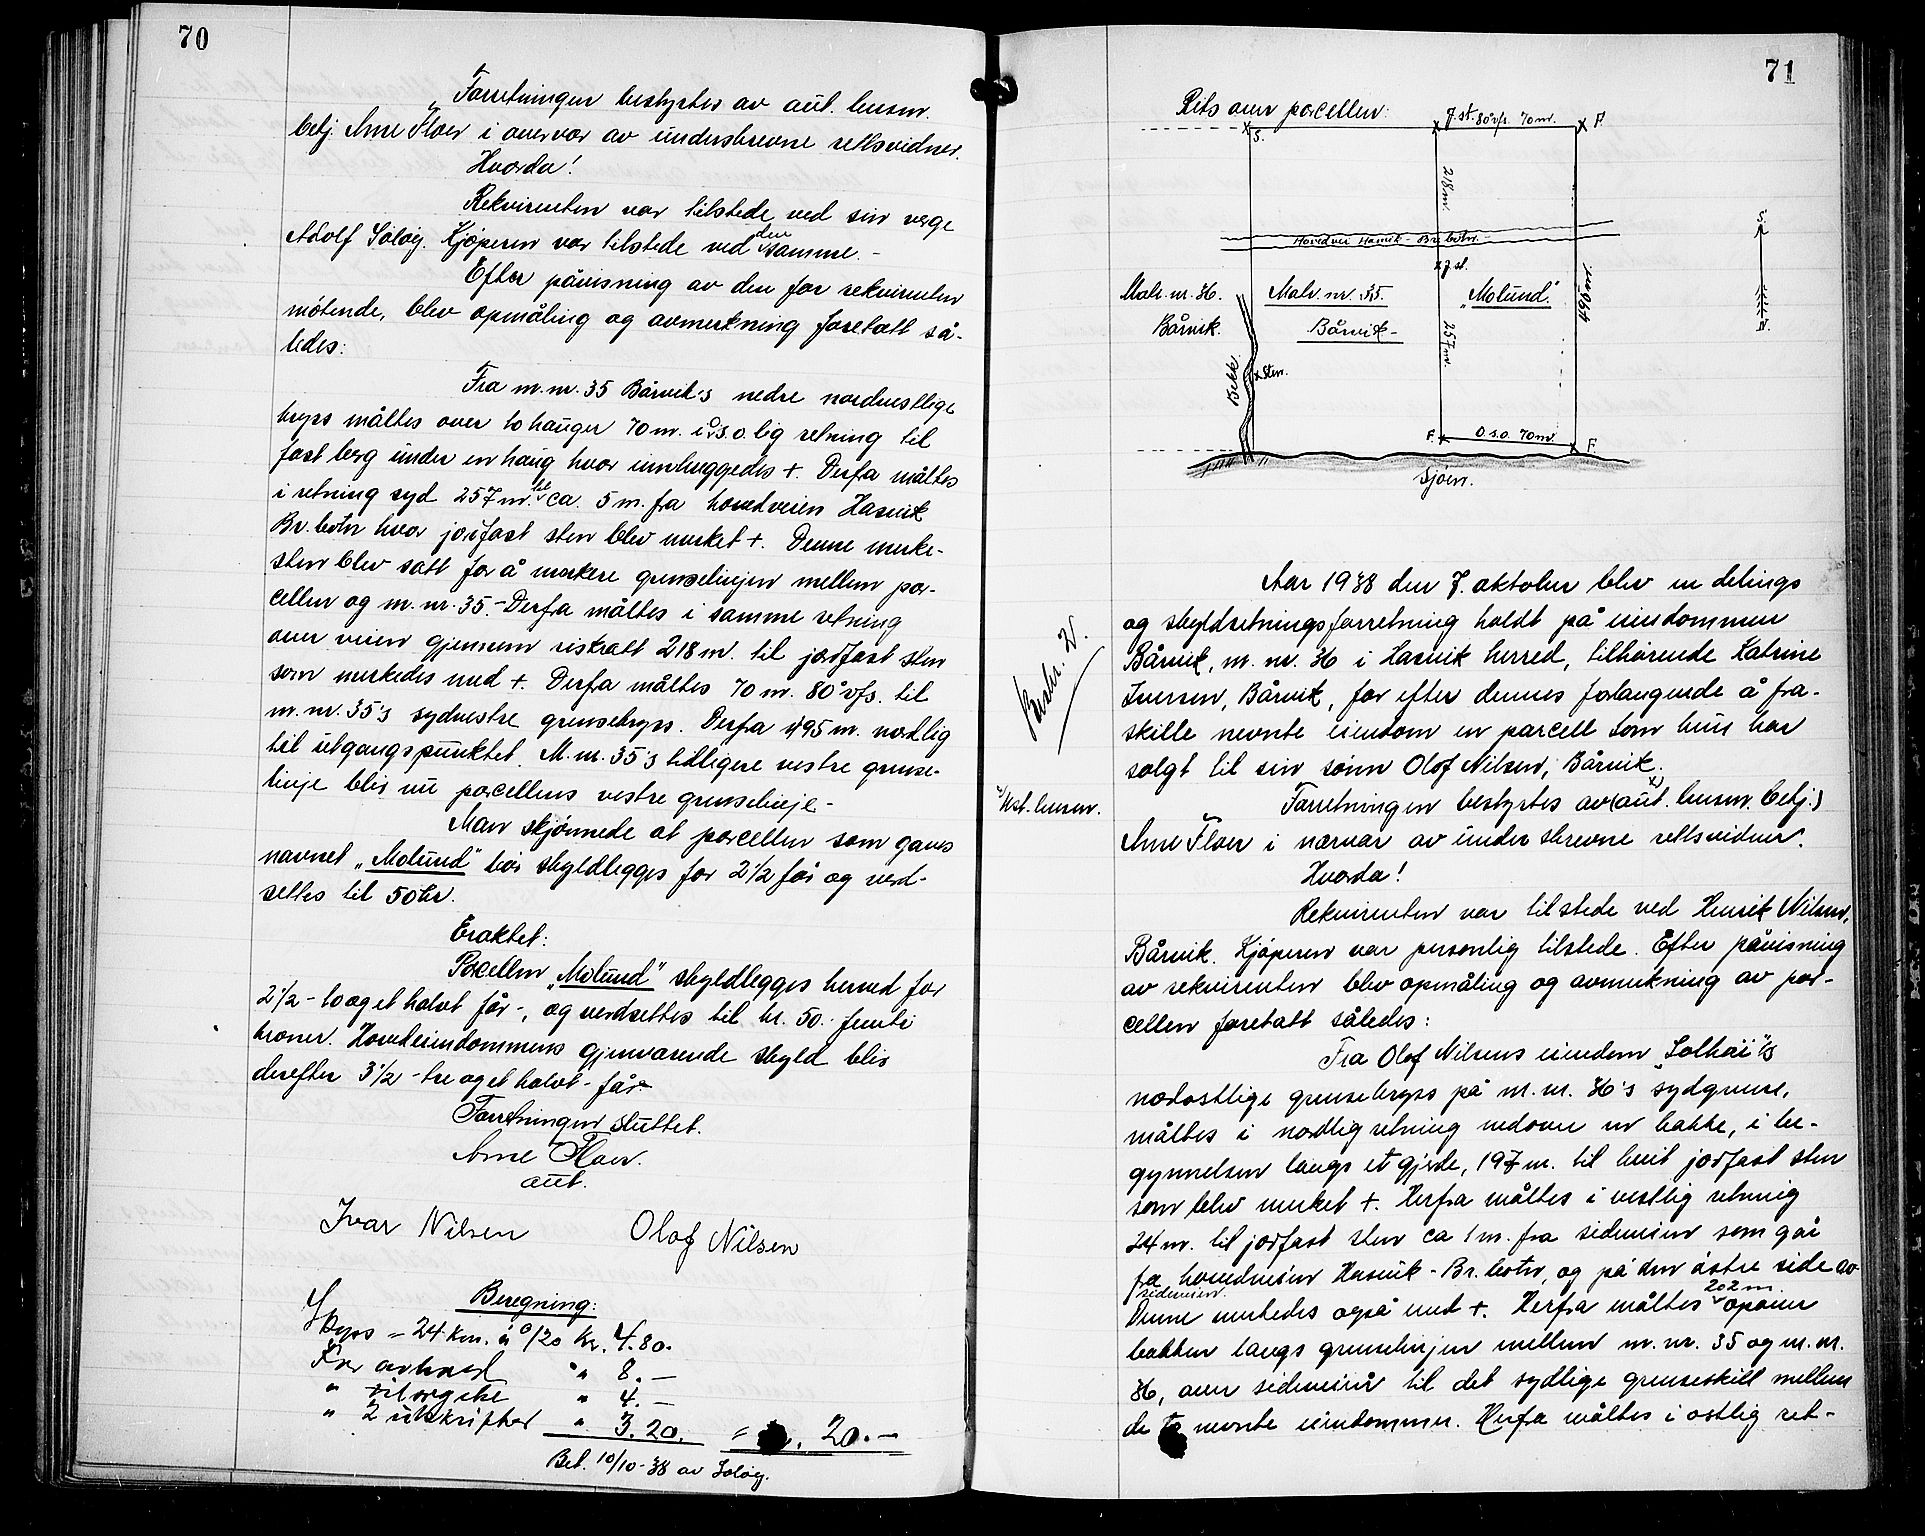 70
Forretningen bestyrtes av aut. lensm.
betj. Arne Floer i overvær av underskrevne rettsvidner.
Hvorda!
Rekvirenten var tilstede ved sin verge
Adolf Soløy. Kjøperen var tilstede ved den samme.-
Efter påvisning av den for rekvirenten
møtende, blev opmåling og avmerkning foretatt så-
ledes:
Fra m.nr. 35 Bårvik's nedre nordvestlige
kryss måltes over to hauger 70 m. i o.s.o. lig retning til
fast berg under en haug hvor innhuggedes +. Derfra måltes
i retning syd 257 m. til ca. 5 m. fra hovedveien Hasvik
Br.botn hvor jordfast sten blev merket +. Denne merke-
sten blev satt for å markere grenselinjen mellem par-
cellen og m.nr. 35.- Derfra måltes i samme retning
over veien gjennem riskratt 218 m. til jordfast sten
som merkedes med +. Derfra måltes 70 m. 80° vfs. til
m.nr. 35's sydvestre grensekryss. Derfra 495 m. nordlig
til utgangspunktet. M.nr. 35's tidligere vestre grense-
linje blir nu parcellens vestre grenselinje-
Man skjønnede at parcellen som gaves
navnet „Molund" bør skyldlegges for 2 1/2 før og verd-
settes til 50 kr.
Eraktet:
Parcellen „Molund" skyldlegges herved for
2 1/2 - to og et halvt før -, og verdsettes til kr. 50.- femti
kroner. Hovedeiendommens gjenværende skyld blir
derefter 3 1/2 - tre og et halvt - før-
Forretningen sluttet.
Arne Floer.
aut.
Ivar Nilsen Olaf Nilsen
Beregning:
Skyss - 24 km. à 0/20 Kr. 4.80.
For avhold " 8.-
" 4.-
" 2 utskrifter " 3.20. = 20.-
Bet. 10/10-38 av Soløy.
71
Rits over parcellen:
S. J.st. 80° vfs. 70 m. F.
218 m.
Hovedvei Hasvik - Br.botn.
x J.st.
Matr. nr. 36. Matr. nr. 35. „Molund".
Bårvik. Bårvik-
257 m.
495 m.
S.
N.
Bekk
x Sten.
F. O.s.o. 70 m. F.
Sjøen.
Aar 1938 den 7. oktober blev en delings
og skyldsetningsforretning holdt på eiendommen
Bårvik, m. nr. 36 i Hasvik herred, tilhørende Katrine
Iversen, Bårvik, for efter dennes forlangende å fra-
skille nevnte eiendom en parcell som hun har
solgt til sin sønn Olaf Nilsen, Bårvik.
Forretningen bestyrtes av (aut. lensm. betj.) x)
x) Kst. lensm.
Arne Floer i nærvær av underskrevne rettsvidner.
Hvorda!
Rekvirenten var tilstede ved Henrik Nilsen,
Bårvik. Kjøperen var personlig tilstede. Efter påvisning
av rekvirenten blev opmåling og avmerkning av par-
cellen foretatt således:
Fra Olaf Nilsens eiendom „Solhøi"'s
nordostlige grensekryss på m.nr. 36's sydgrense,
måltes i nordlig retning nedover en bakke, i be-
gynnelsen langs et gjerde, 197 m. til hvit jordfast sten
som blev merket +. Herfra måltes i vestlig retning
24 m. til jordfast sten ca 1 m. fra sideveien som går
fra hovedveien Hasvik - Br.botn, og på den østre side av
sideveien.
Denne merkedes også med +. Herfra måltes 202 m. opover
bakken langs grenselinjen mellem m.nr. 35 og m.nr.
36, over sideveien til det sydlige grenseskill mellem
de to nevnte eiendommer. Herfra måltes i østlig ret-